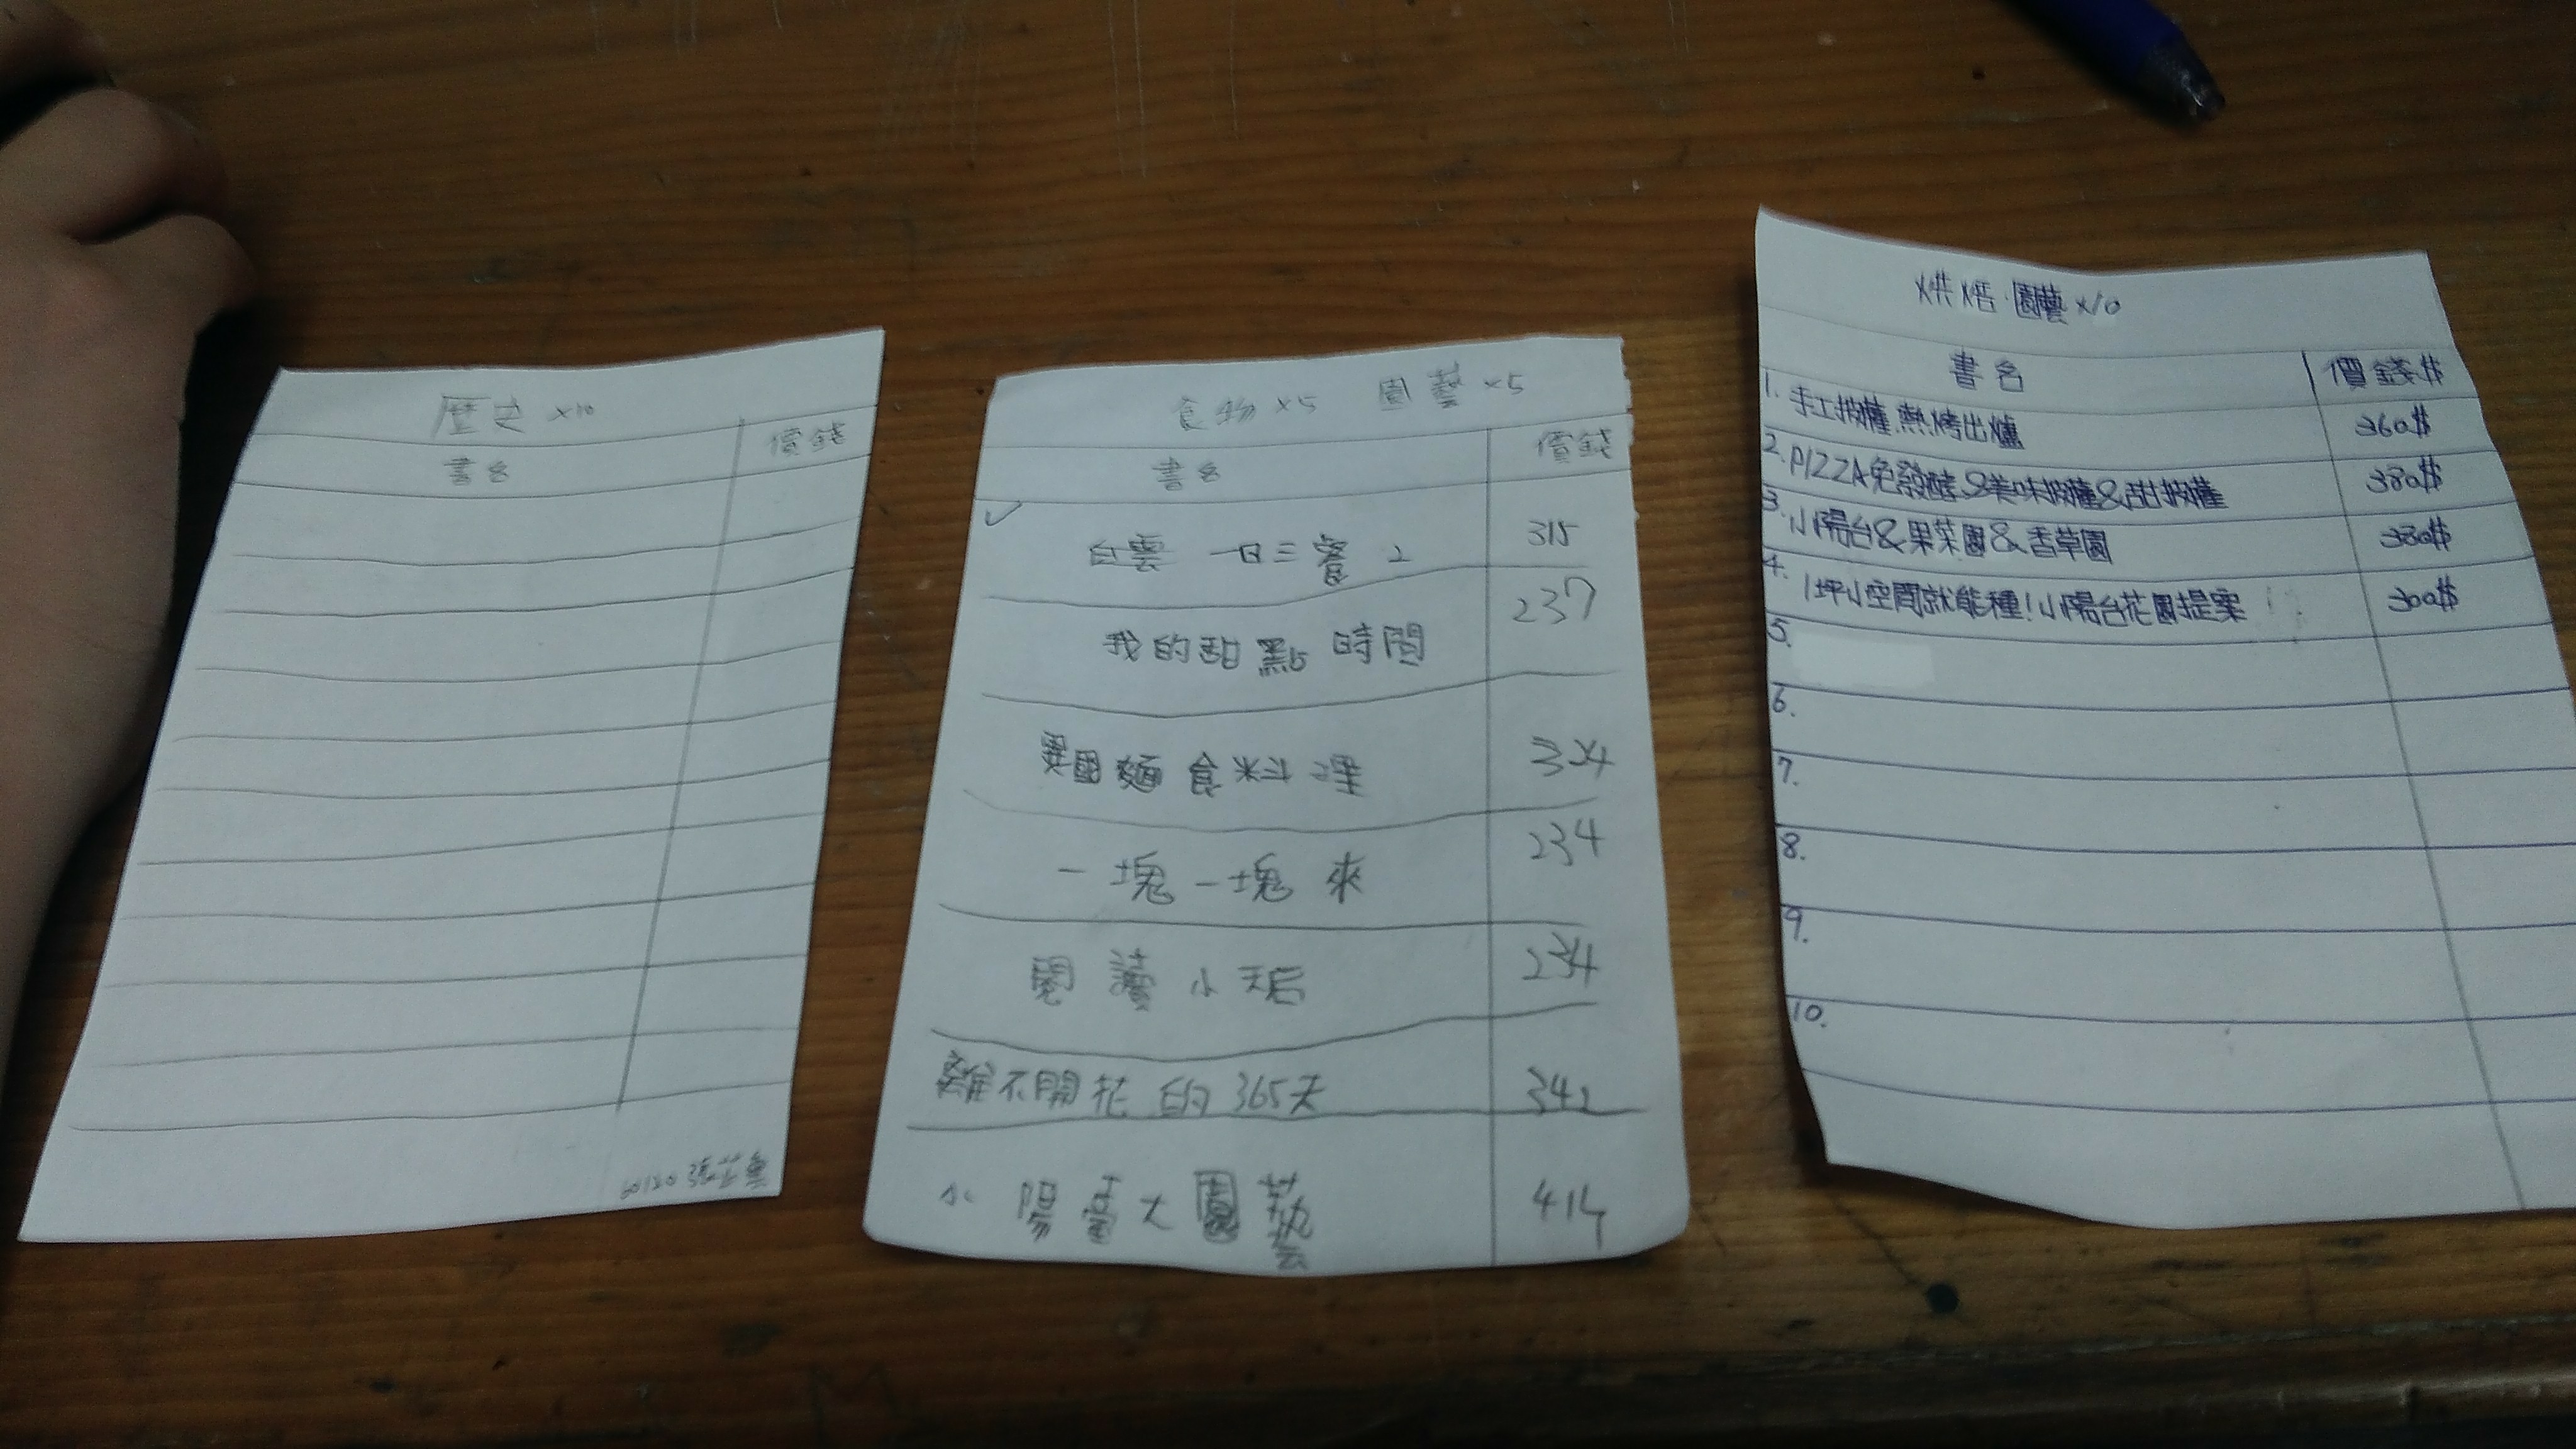 歷史 ×10
書名 價錢
60130
食物 ×5 園藝 ×5
書名 價錢
白雲 一日三餐 2 315
我的甜點時間 237
異國麵食料理 324
一塊一塊來 234
閱讀小天后 234
離不開花的365天 342
小陽臺大園藝 414
烘焙.園藝×10
書名 價錢$
1. 手工披薩.熱烤出爐 360$
2. PIZZA免發酵&美味披薩&甜披薩 380$
3. 小陽台&果菜園&香草園 380$
4. 1坪小空間就能種!小陽台花園提案 300$
5.
6.
7.
8.
9.
10.